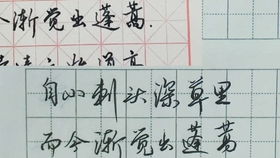 今渐觉出蓬蒿.
自小刺头深草里
而今渐觉出蓬蒿